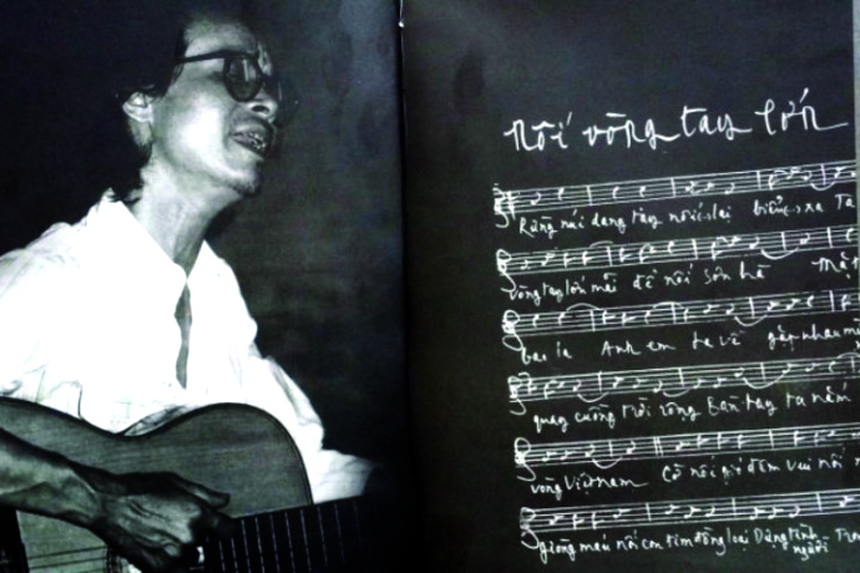 Nối vòng tay lớn
Rừng núi dang tay nối lại biển xa Ta
vòng tay lớn mãi để nối sơn hà Mặt
bao la Anh em ta về gặp nhau
quay cuồng trời rộng Bàn tay ta nắm
vòng Việt nam Cờ nối gió đêm vui nối
giòng máu nối con tim đồng loại Dựng tình người Trong